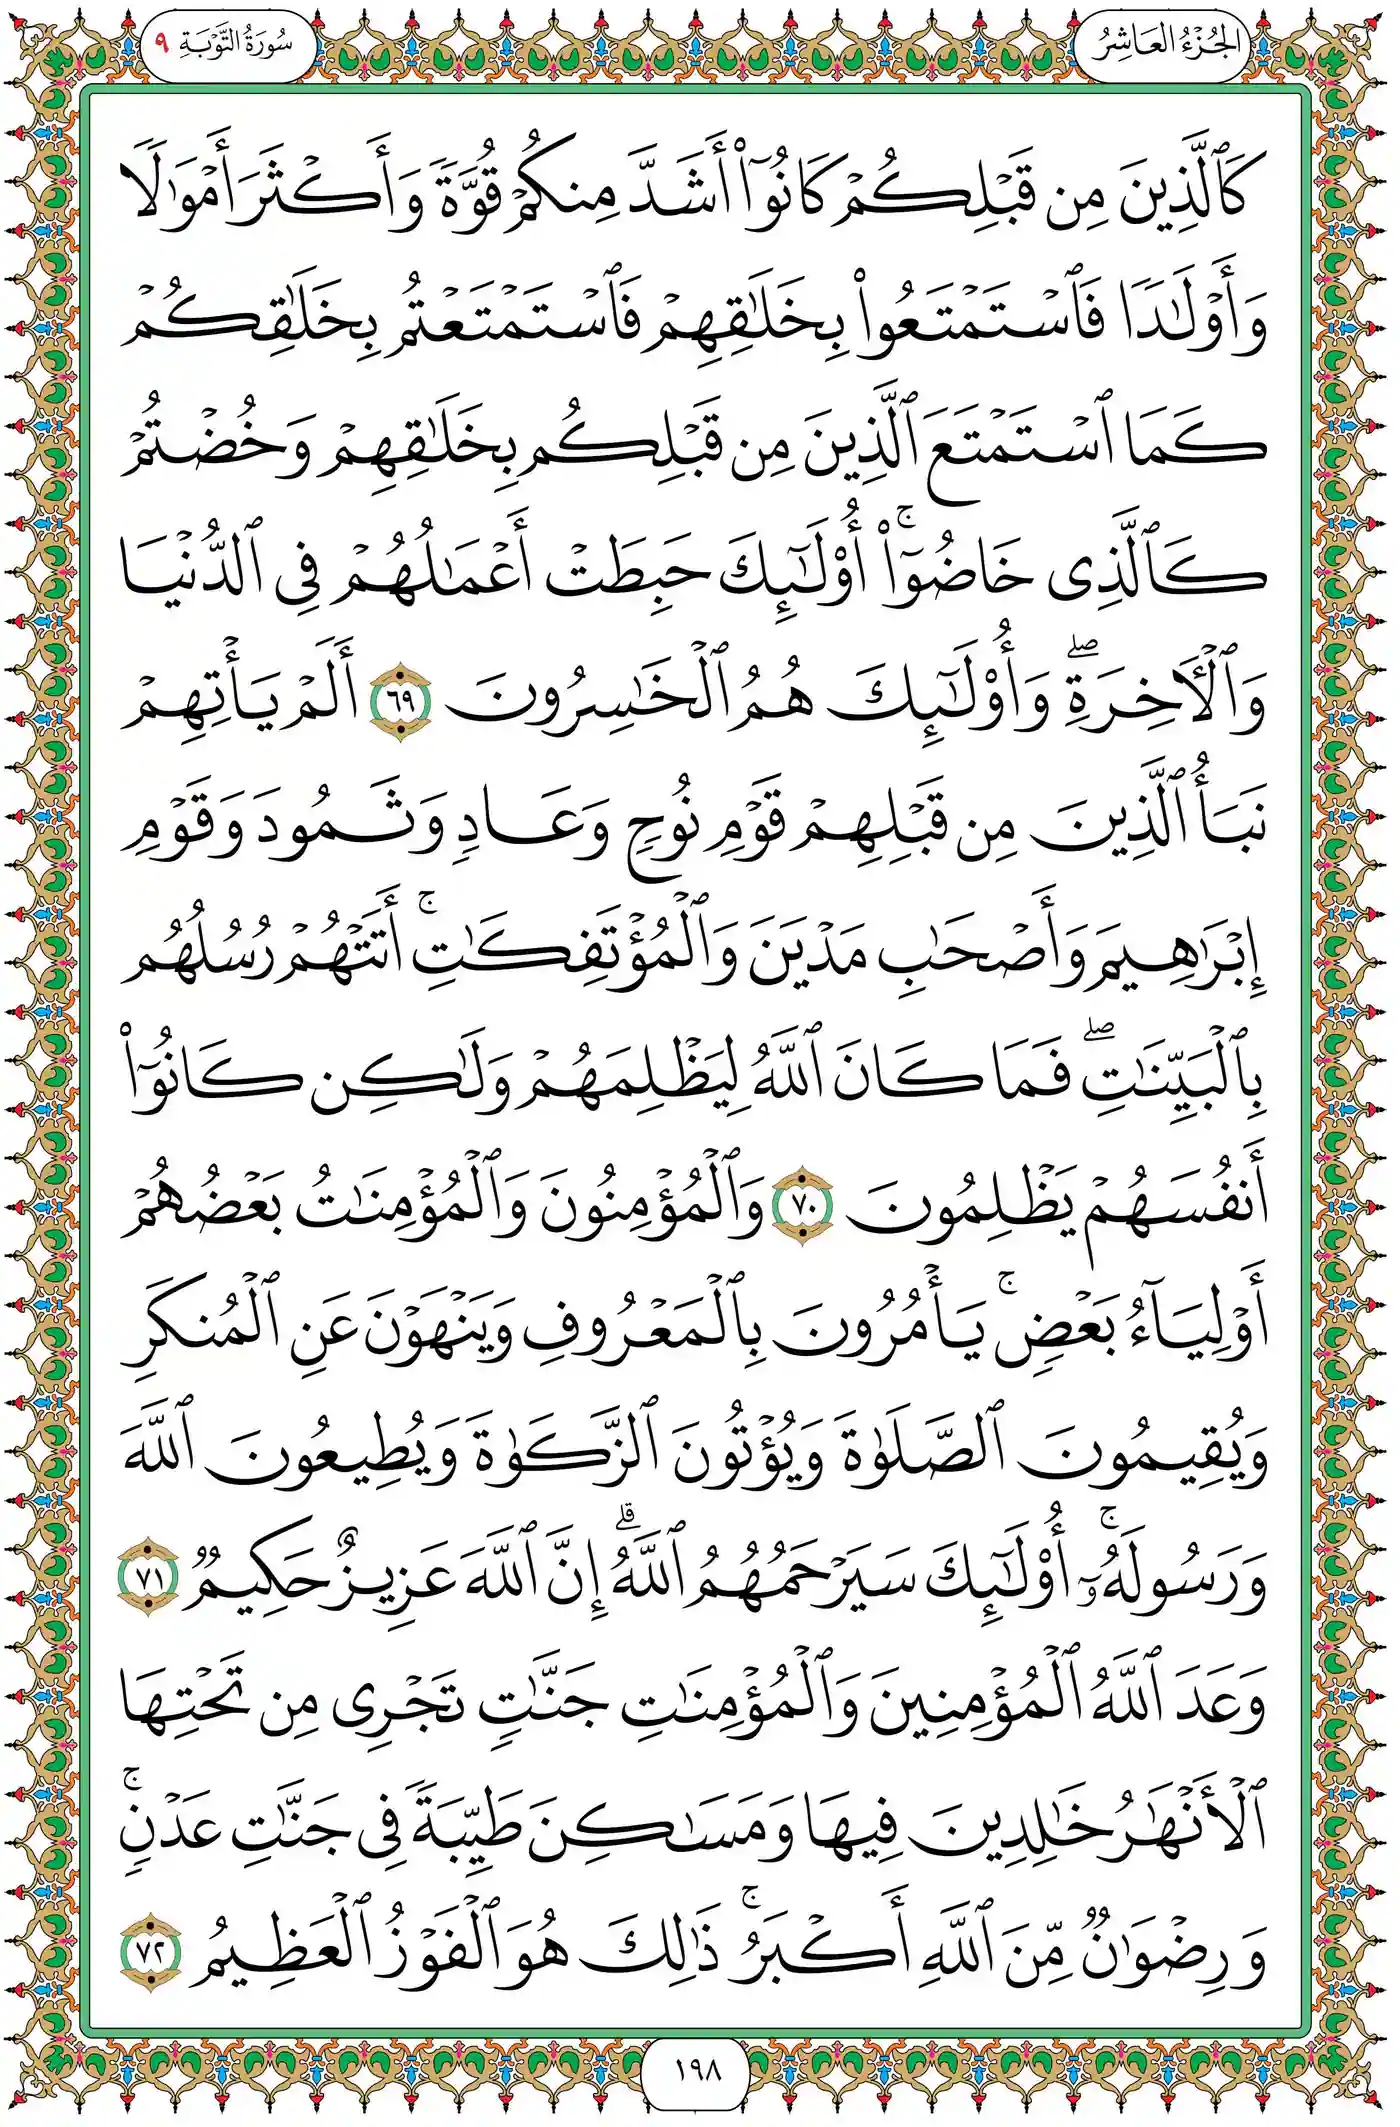 الجُزْءُ العَاشِرُ
سُورَةُ التَّوْبَةِ ٩
كَٱلَّذِينَ مِن قَبْلِكُمْ كَانُوٓا۟ أَشَدَّ مِنكُمْ قُوَّةً وَأَكْثَرَ أَمْوَٰلًا
وَأَوْلَـٰدًا فَٱسْتَمْتَعُوا۟ بِخَلَـٰقِهِمْ فَٱسْتَمْتَعْتُم بِخَلَـٰقِكُمْ
كَمَا ٱسْتَمْتَعَ ٱلَّذِينَ مِن قَبْلِكُم بِخَلَـٰقِهِمْ وَخُضْتُمْ
كَٱلَّذِى خَاضُوٓا۟ ۚ أُو۟لَـٰٓئِكَ حَبِطَتْ أَعْمَـٰلُهُمْ فِى ٱلدُّنْيَا
وَٱلْـَٔاخِرَةِ ۖ وَأُو۟لَـٰٓئِكَ هُمُ ٱلْخَـٰسِرُونَ ٦٩ أَلَمْ يَأْتِهِمْ
نَبَأُ ٱلَّذِينَ مِن قَبْلِهِمْ قَوْمِ نُوحٍ وَعَادٍ وَثَمُودَ وَقَوْمِ
إِبْرَٰهِيمَ وَأَصْحَـٰبِ مَدْيَنَ وَٱلْمُؤْتَفِكَـٰتِ ۚ أَتَتْهُمْ رُسُلُهُم
بِٱلْبَيِّنَـٰتِ ۖ فَمَا كَانَ ٱللَّهُ لِيَظْلِمَهُمْ وَلَـٰكِن كَانُوٓا۟
أَنفُسَهُمْ يَظْلِمُونَ ٧٠ وَٱلْمُؤْمِنُونَ وَٱلْمُؤْمِنَـٰتُ بَعْضُهُمْ
أَوْلِيَآءُ بَعْضٍ ۚ يَأْمُرُونَ بِٱلْمَعْرُوفِ وَيَنْهَوْنَ عَنِ ٱلْمُنكَرِ
وَيُقِيمُونَ ٱلصَّلَوٰةَ وَيُؤْتُونَ ٱلزَّكَوٰةَ وَيُطِيعُونَ ٱللَّهَ
وَرَسُولَهُۥٓ ۚ أُو۟لَـٰٓئِكَ سَيَرْحَمُهُمُ ٱللَّهُ ۗ إِنَّ ٱللَّهَ عَزِيزٌ حَكِيمٌ ٧١
وَعَدَ ٱللَّهُ ٱلْمُؤْمِنِينَ وَٱلْمُؤْمِنَـٰتِ جَنَّـٰتٍ تَجْرِى مِن تَحْتِهَا
ٱلْأَنْهَـٰرُ خَـٰلِدِينَ فِيهَا وَمَسَـٰكِنَ طَيِّبَةً فِى جَنَّـٰتِ عَدْنٍ ۚ
وَرِضْوَٰنٌ مِّنَ ٱللَّهِ أَكْبَرُ ۚ ذَٰلِكَ هُوَ ٱلْفَوْزُ ٱلْعَظِيمُ ٧٢
١٩٨